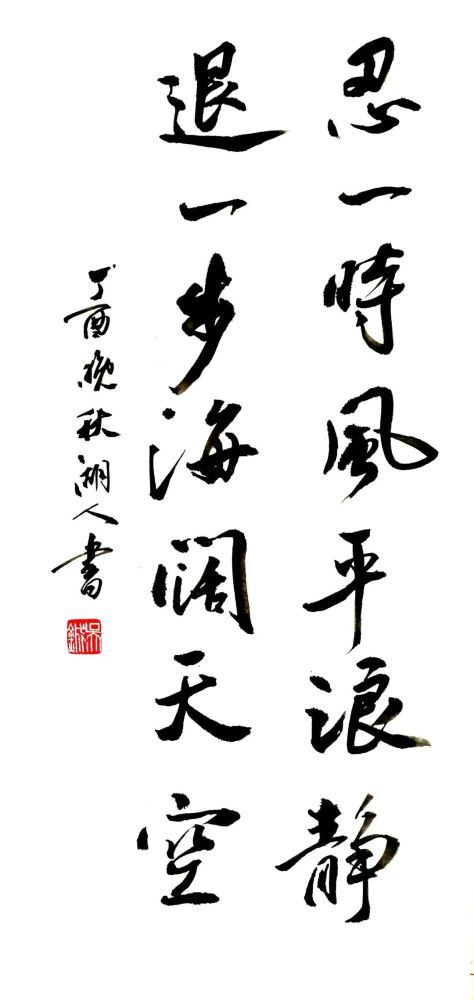 忍一時風平浪静
退一步海阔天空
丁酉晚秋湖人書